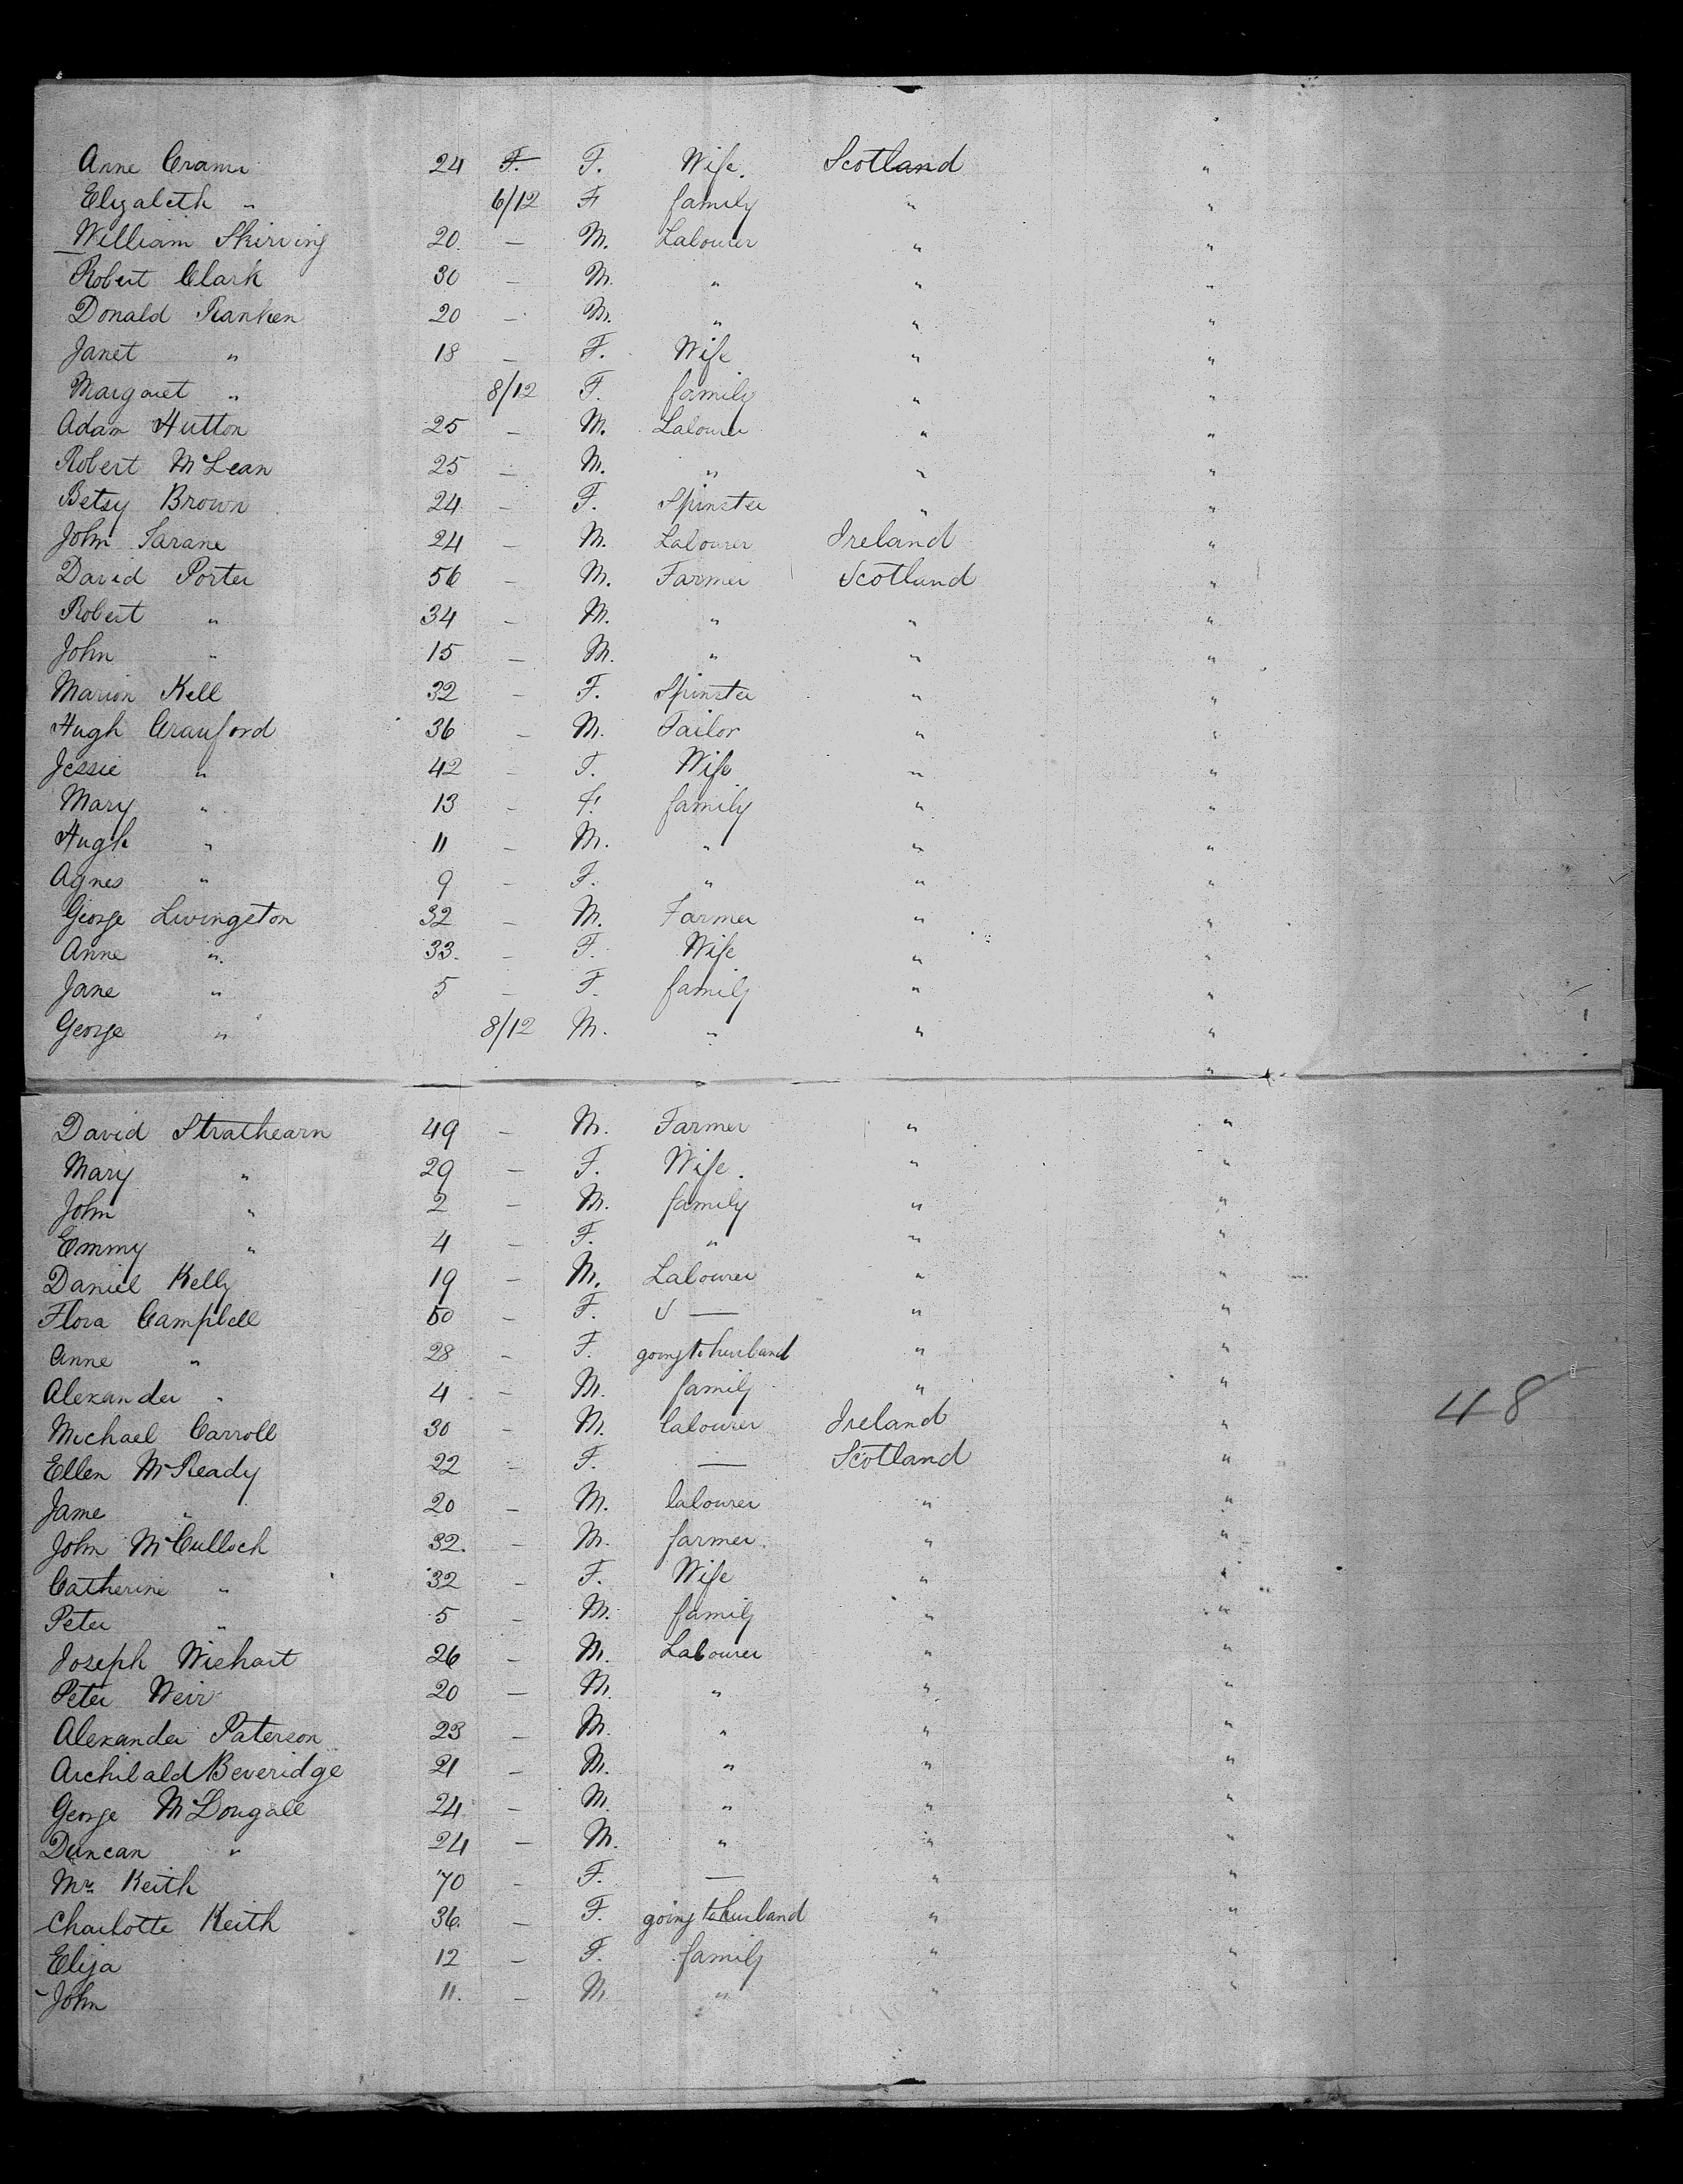 Anne Crame 24 F. F. Wife. Scotland "
Elizabeth " 6/12 F family " "
William Skirving 20 — M. Labourer " "
Robert Clark 30 — M. " " "
Donald Ranken 20 — M. " " "
Janet " 18 — F. Wife " "
Margaret " 8/12 F. family " "
Adam Hutton 25 — M. Labourer " "
Robert McLean 25 — M. " " "
Betsy Brown 24 — F. Spinster " "
John 24 — M. Labourer Ireland "
David Porter 56 — M. Farmer Scotland "
Robert " 34 — M. " " "
John " 15 — M. " " "
Marion Kell 32 — F. Spinster " "
Hugh Crauford 36 — M. Tailor " "
Jessie " 42 — F. Wife " "
Mary " 13 — F. family " "
Hugh " 11 — M. " " "
Agnes " 9 — F. " " "
George Livingston 32 — M. Farmer " "
Anne " 33. — F. Wife " "
Jane " 5 — F. family " "
George " 8/12 M. " " "
"
David Strathearn 49 — M. Farmer " "
Mary " 29 — F. Wife. " "
John " 2 — M. family " "
Emmy " 4 — F. " " "
Daniel Kelly 19 — M. Labourer " "
Flora Campbell 50 — F. — " "
Anne " 28 — F. going to husband " "
Alexander " 4 — M. family " "
48
Michael Carroll 30 — M. labourer Ireland "
Ellen McReady 22 — F. — Scotland "
Jame " 20 — M. labourer " "
John McCulloch 32. — M. farmer. " "
Catherine " 32 — F. Wife " "
Peter " 5 — M. family " "
Joseph Wishart 26 — M. Labourer " "
Peter Weir 20 — M. " " "
Alexander Paterson 23 — M. " " "
Archibald Beveridge 21 — M. " " "
George McDougall 24 — M. " " "
Duncan " 24 — M. " " "
Mrs Keith 70 — F. — " "
Charlotte Keith 36. — F. going to husband " "
Eliza 12 — F. family " "
John 11. — M. " " "